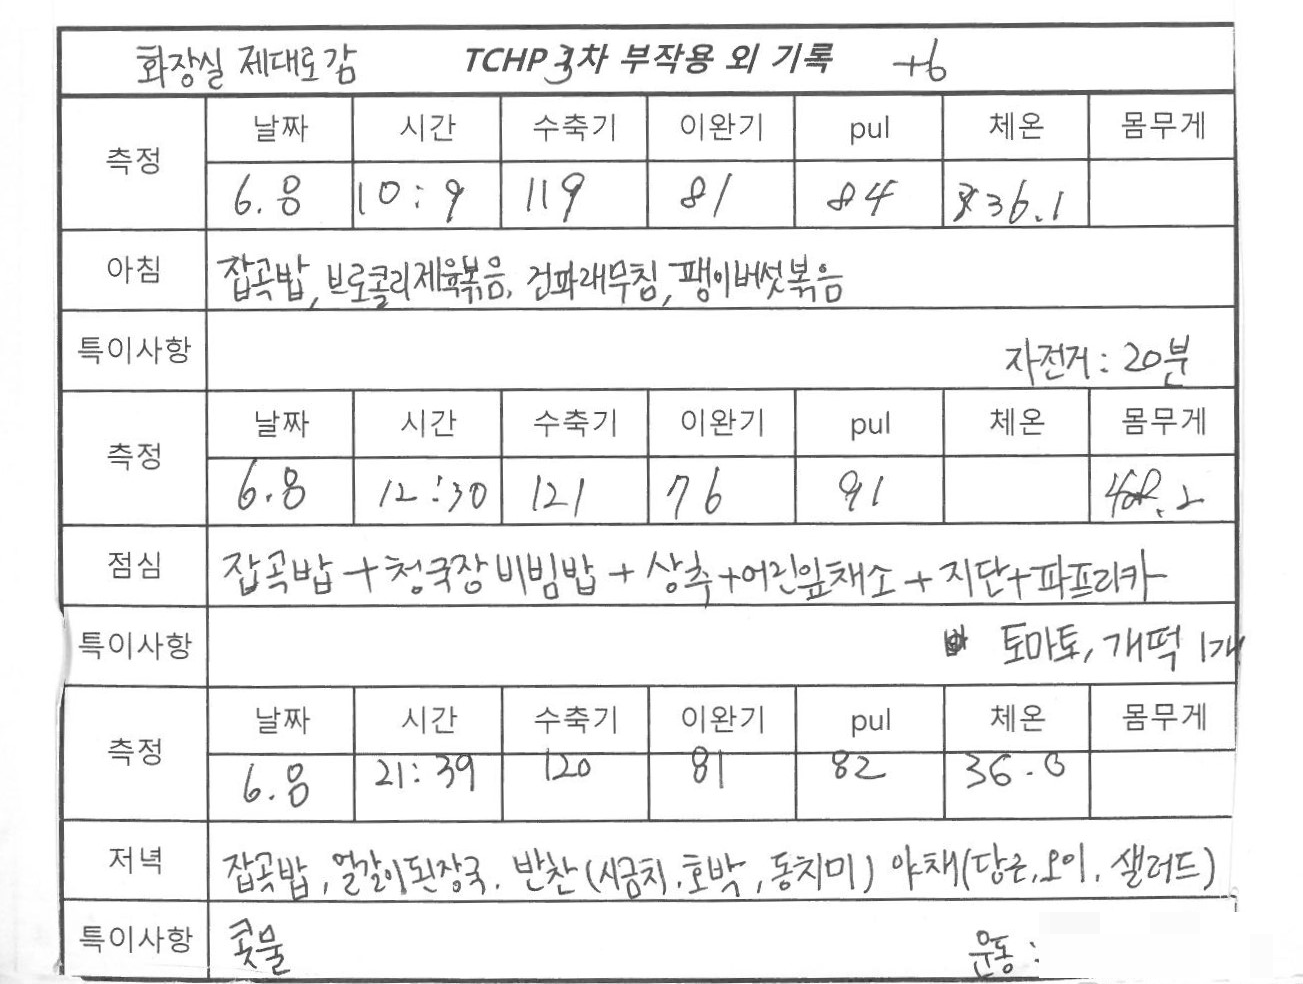 화장실 제대로감 TCHP 3차 부작용 외 기록 +6
측정 날짜 시간 수축기 이완기 pul 체온 몸무게
6.8 10:9 119 81 84 36.1
아침 잡곡밥, 브로콜리제육볶음, 건파래무침, 팽이버섯볶음
특이사항 자전거: 20분
측정 날짜 시간 수축기 이완기 pul 체온 몸무게
6.8 12:30 121 76 91
점심 잡곡밥 + 청국장비빔밥 + 상추+어린잎채소 + 지단+파프리카
특이사항 토마토, 개떡 1개
측정 날짜 시간 수축기 이완기 pul 체온 몸무게
6.8 21:39 120 81 82 36.0
저녁 잡곡밥, 얼갈이된장국. 반찬(시금치.호박, 동치미) 야채(당근,오이. 샐러드)
특이사항 콧물 운동: